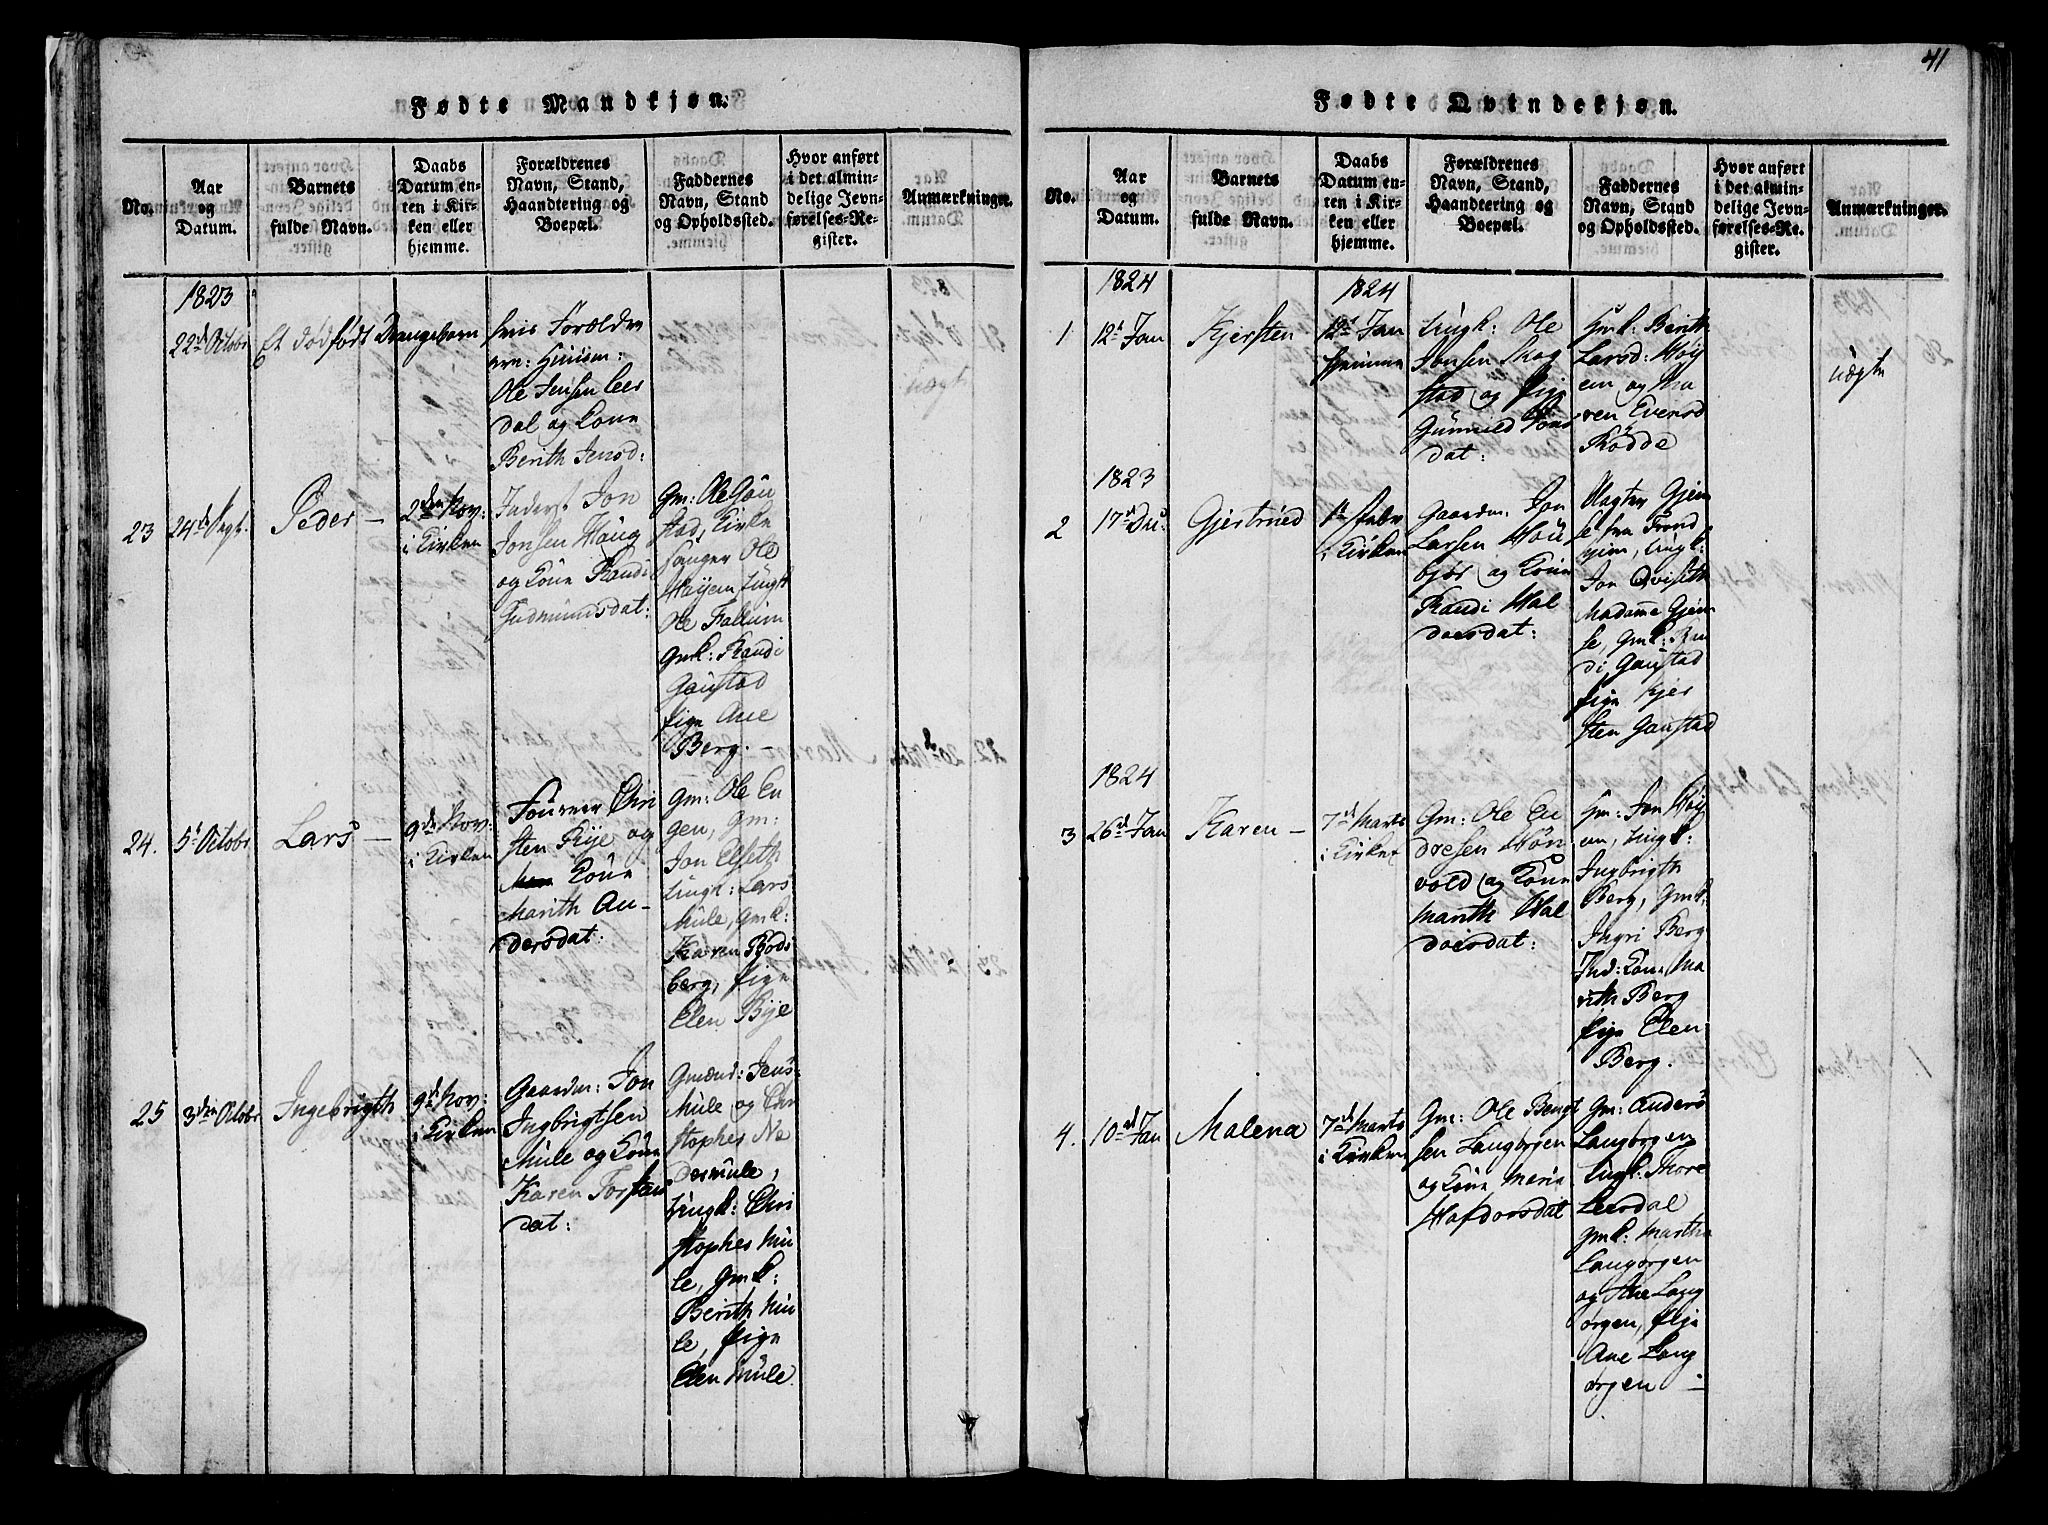 41
Fødte Mandkjøn.
No.
Aar
og
Datum.
Barnets
fulde Navn.
Daabs
Datum en-
ten i Kir-
ken eller
hjemme.
Forældrenes
Navn, Stand,
Haandtering og
Boepæl.
Faddernes
Navn, Stand
og Opholdssted.
Hvor anført
i det almin-
delige Jevn-
førelses-Re-
gister.
Anmærkninger.
1823
22d Octobr
Et dødfødt Drengebarn
hvis Foreldre
ere: Huusm:
Ole Jensen Leer
dal og Kone
Berith Jensd:
23
24de Sept:
Peder –
2den Nov:
i Kirken
Inderst Jon
Jonsen Haug
og Kone Randi
Gudmundsdat:
Gm: Ole Gau
stad, Kirke
sanger Ole
Høyem, Ungk
Ole Fallum
Gmk: Randi
Gaustad
Pige Ane
Berg. –
24.
5t Octobr
Lars –
9de Nov:
i Kirken
Christen Rye og
Kone
Marith An-
dersdat:
Gm: Ole En
gen, Gm:
Jon Elseth
Ungk: Lars
Mule, Gmk:
Karen Rods
berg, Pige
Elen Bye
25
3den Octobr
Ingebrigth
9d Nov:
i Kirken
Gaardm: Jon
Ingbrigtsen
Mule og Kone
Karen Torstens
dat:
Gmænd: Jens
Mule og Chri
stopher Ne
dermule,
Ungk: Chri
stopher Mu
le, Gmk:
Berith Mu
le, Pige
Elen Mule.
Fødte Qvindekjøn.
No.
Aar
og
Datum.
Barnets
fulde Navn.
Daabs
Datum en-
ten i Kir-
ken eller
hjemme.
Forældrenes
Navn, Stand,
Haandtering og
Boepæl.
Faddernes
Navn, Stand
og Opholdssted.
Hvor anført
i det almin-
delige Jevn-
førelses-Re-
gister.
Anmærkninger.
1824
1
12t Jan
Kjersten
1824
12t Jan
hjemme
Ungk: Ole
Jonsen Skog
stad og Pige
Gunnild Jons
dat:
Gmk: Berith
Larsd: Høy
em og Ma
ren Evensd
Rødde
uægte
1823
2
17d Du:
Gjertrued
1t Febr
i Kirken
Gaardm: Jon
Larsen Hou
bjør og Kone
Randi Hal
dorsdat:
Slagter Gjem
se fra Trond
hjem, Ungk:
Jon Qviseth
Madame Gjem
se, Gmk: Ran
di Gaustad
Pige Kjer
sten Gaustad
1824
3
26d Jan
Karen –
7d Marts
i Kirken
Gm: Ole En
dresen Møn
vold og Kone
Marith Hal
dorsdat:
Gm: Jon Høy
em, Ungk:
Ingbrigth
Berg, Gmk.
Ingri Berg
Ind: Kone Ma
rith Berg
Pige Elen
Berg.
4.
10d Jan
Malena
7d Marts
i Kirken
Gm: Ole Bengt
sen Langørgen
og Kone Marie
Hafdorsdat
Gm: Anders
Langørgen
Ungk: Thore
Leerdal
Gmk: Martha
Langørgen
og Ane Lang
ørgen, Pige
Ane Lang
ørgen –